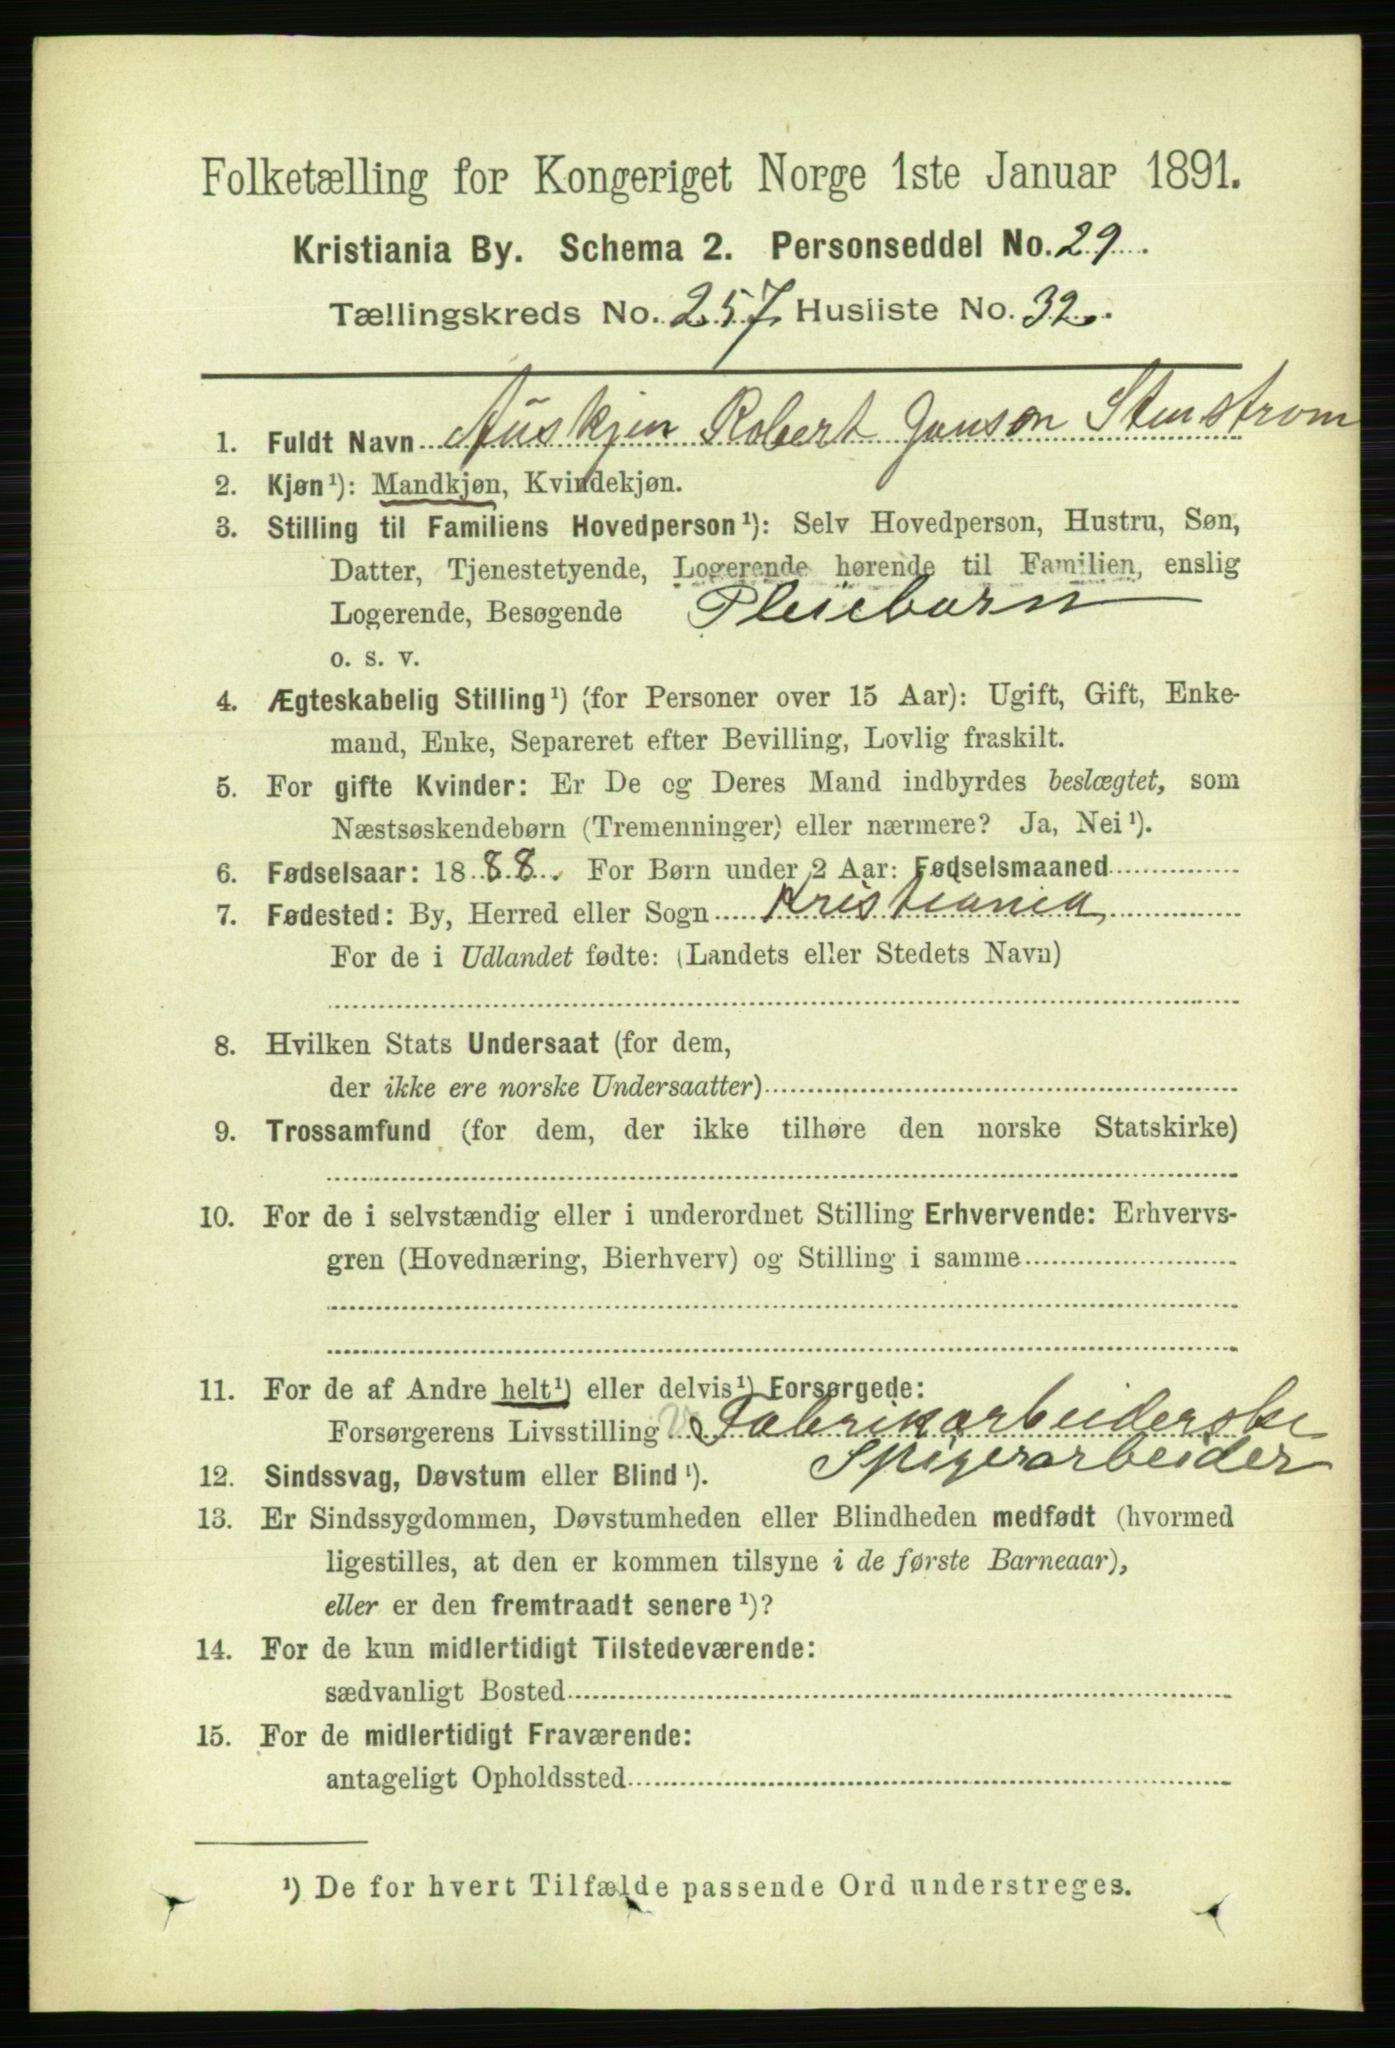 Folketælling for Kongeriget Norge 1ste Januar 1891.
Kristiania By. Schema 2. Personseddel No. 29.
Tællingskreds No. 257 Husliste No. 32.
1. Fuldt Navn Robert Janson Stenstrom
2. Kjøn¹): Mandkjøn, Kvindekjøn.
3. Stilling til Familiens Hovedperson¹): Selv Hovedperson, Hustru, Søn,
Datter, Tjenestetyende, Logerende hørende til Familien, enslig
Logerende, Besøgende Pleiebarn
o. s. v.
4. Ægteskabelig Stilling¹) (for Personer over 15 Aar): Ugift, Gift, Enke-
mand, Enke, Separeret efter Bevilling, Lovlig fraskilt.
5. For gifte Kvinder: Er De og Deres Mand indbyrdes beslægtet, som
Næstsøskendebørn (Tremenninger) eller nærmere? Ja, Nei¹).
6. Fødselsaar: 1888. For Børn under 2 Aar: Fødselsmaaned
7. Fødested: By, Herred eller Sogn Kristiania
For de i Udlandet fødte: (Landets eller Stedets Navn)
8. Hvilken Stats Undersaat (for dem,
der ikke ere norske Undersaatter)
9. Trossamfund (for dem, der ikke tilhøre den norske Statskirke)
10. For de i selvstændig eller i underordnet Stilling Erhvervende: Erhvervs-
gren (Hovednæring, Bierhverv) og Stilling i samme
11. For de af Andre helt¹) eller delvis¹) Forsørgede:
Forsørgerens Livsstilling Fabrikarbeiderske
Spigerarbeider
12. Sindssvag, Døvstum eller Blind¹).
13. Er Sindssygdommen, Døvstumheden eller Blindheden medfødt (hvormed
ligestilles, at den er kommen tilsyne i de første Barneaar),
eller er den fremtraadt senere¹)?
14. For de kun midlertidigt Tilstedeværende:
sædvanligt Bosted
15. For de midlertidigt Fraværende:
antageligt Opholdssted
¹) De for hvert Tilfælde passende Ord understreges.